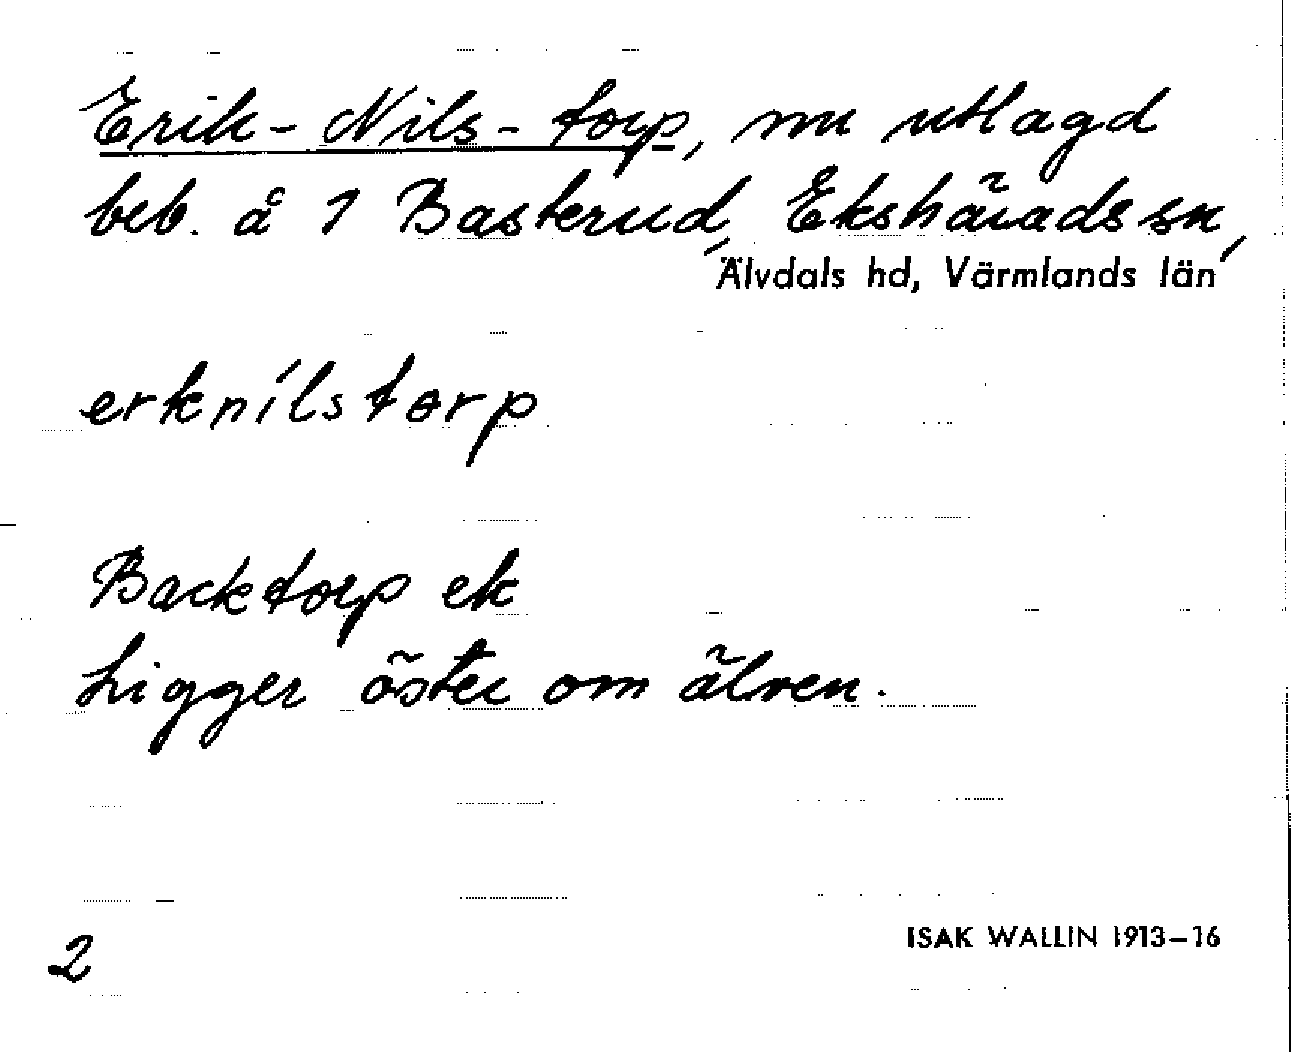 Erik-Nils-torp, nu utlagd
beb. å 1 Basterud, Ekshärads sn,
Älvdals hd, Värmlands län
erknílstorp
Backtorp ek
Ligger öster om älven.
2
ISAK WALLIN 1913–16